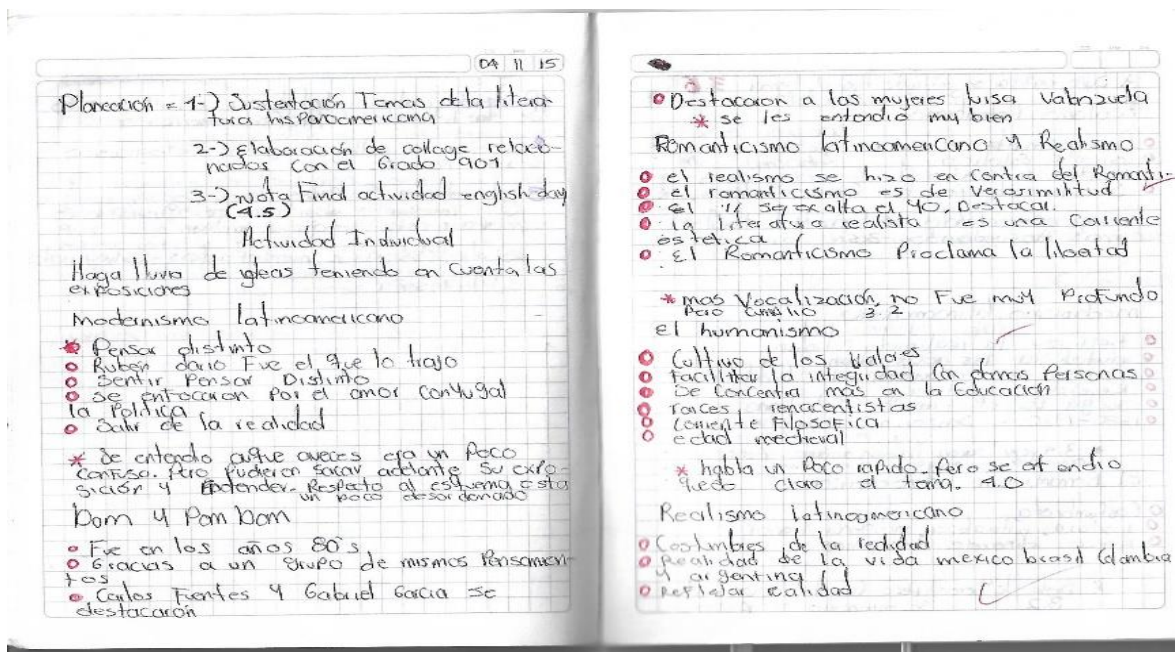 04 11 15
Planeación = 1-) Sustentación Temas de la litera-
tura hispanoamericana
2-) Elaboración de collage relacio-
nados con el Grado 901
3-) nota Final actividad english day
(4.5)
Actividad Individual
Haga lluvia de ideas teniendo en cuenta las
exposiciones
Modernismo latinoamericano
Pensar distinto
Ruben dario Fue el que lo trajo
Sentir Pensar Distinto
se enfocaron Por el amor conyugal
la Politica
Salir de la realidad
* Se entendio aunque aveces era un Poco
confuso. Pero Pudieron sacar adelante su expo-
sición y entender. Respecto al esquema esta
un poco desordenado
bom y Pom bom
Fue en los años 80's
Gracias a un grupo de mismos Pensamien-
tos
Carlos Fuentes y Gabriel Garcia se
destacarón
Destacaron a las mujeres luisa Valenzuela
* se les entendio muy bien
Romanticismo latinoamericano y Realismo
el realismo se hizo en contra del Romanti-
el romanticismo es de Verosimilitud
El se exalta el yo. Destacar.
la literatura realista es una Corriente
estetica
El Romanticismo Proclama la libertad
* mas Vocalización, no Fue muy Profundo
Pero 3.2
el humanismo
Cultivo de los Valores
Facilitar la integridad Con demas Personas
Se Concentra más en la Educación
raices renacentistas
Corriente Filosofica
edad medieval
* habla un Poco rapido. Pero se entendio
quedo claro el tema. 4.0
Realismo latinoamericano
Costumbres de la realidad
Realidad de la vida mexico brasil Colombia
y argentina
Reflejar realidad